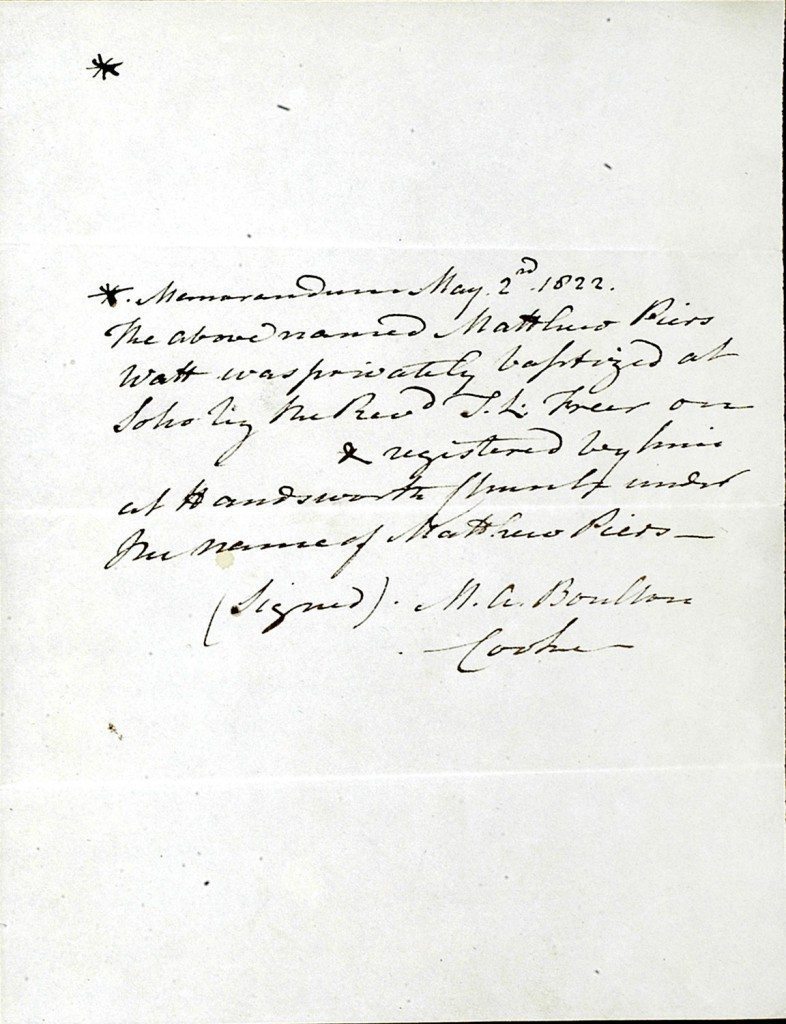 *
*. Memorandum May. 2rd. 1822.
The above named Matthew Piers
Watt was privately baptized at
Soho by the Revd T. L. Freer on
& registered by him
at Handsworth Church under
the name of Matthew Piers —
(Signed). M. A. Boulton
Cooke